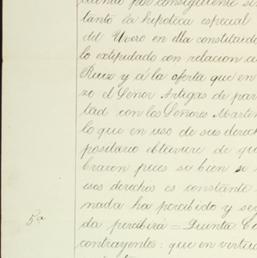 tanto la hipoteca especial
del Uvero en ella constituida
lo estipulado con relacion a
Ruiz y á la oferta que en
zo el Señor Artigas de par
tad con los Señores Martin
lo que en uso de sus derech
positario obtuviere de que
braron pues si bien se
esos derechos es constante
nada ha percibido y se
5ª da percibirá = Quinta Co
contrayentes: que en virtu